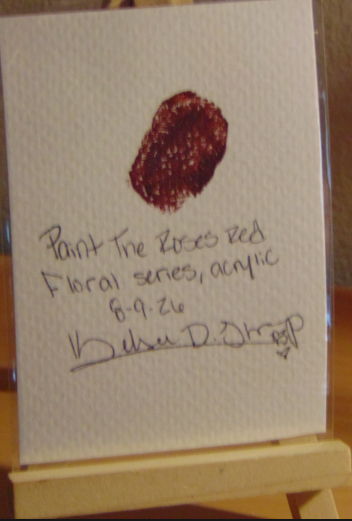 Paint The Roses Red
Floral series, acrylic
8-9-26
D.